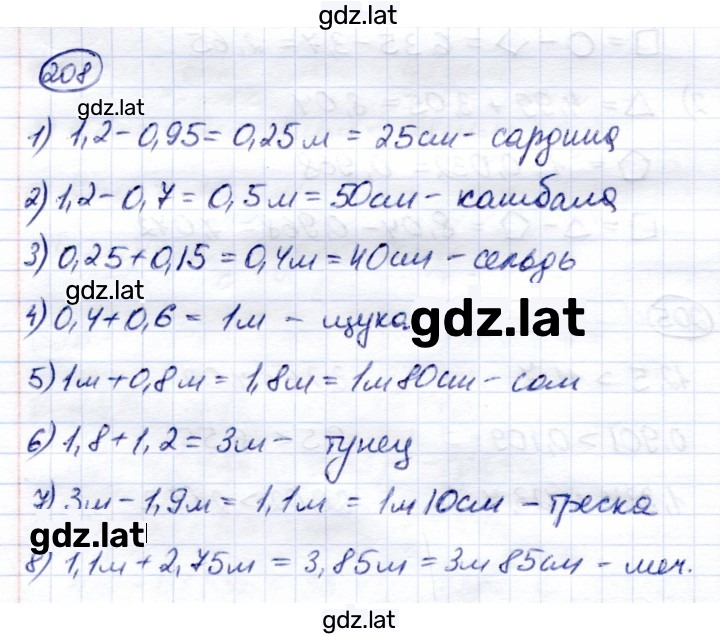 gdz.lat
208
gdz.lat
1) 1,2 - 0,95 = 0,25 м = 25см - сардина
2) 1,2 - 0,7 = 0,5 м = 50см - камбала
3) 0,25 + 0,15 = 0,4м = 40см - сельдь
gdz.lat
4) 0,4 + 0,6 = 1м - щука
gdz.lat
5) 1м + 0,8м = 1,8м = 1м 80см - сом
6) 1,8 + 1,2 = 3м - тунец
7) 3м - 1,9м = 1,1м = 1м 10см - треска
gdz.lat
8) 1,1м + 2,75м = 3,85м = 3м 85см - меч.
gdz.lat